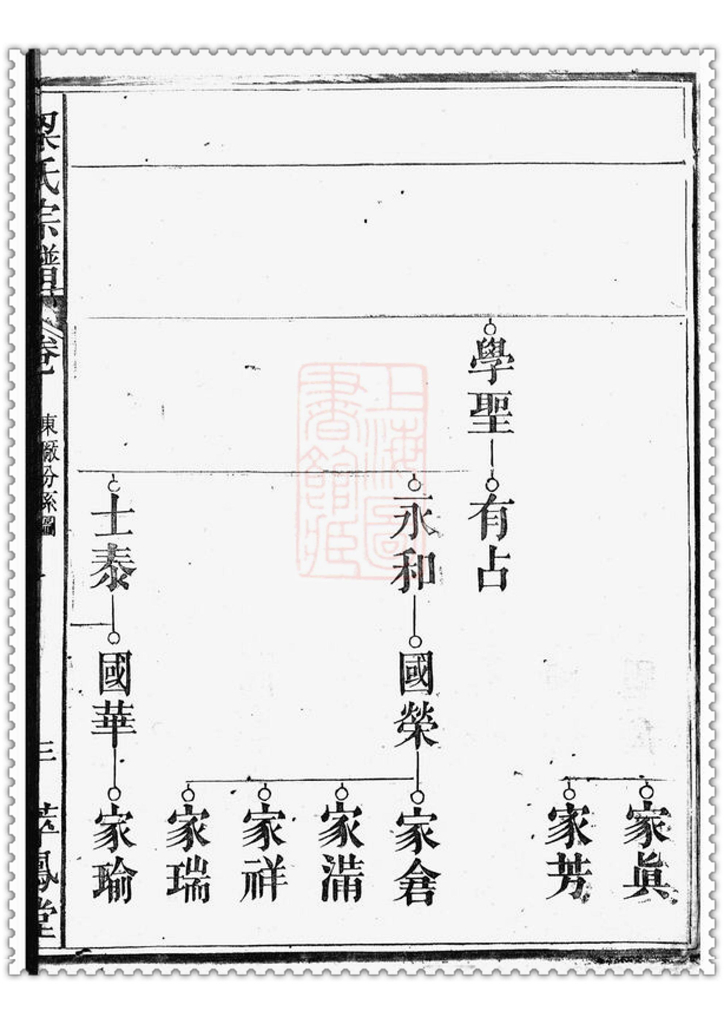 學聖
有占
永和
士泰
國榮
國華
家眞
家芳
家倉
家滿
家祥
家瑞
家瑜
梁氏宗譜
卷
東廠份系圖
三
萃鳳堂
上海圖書館藏